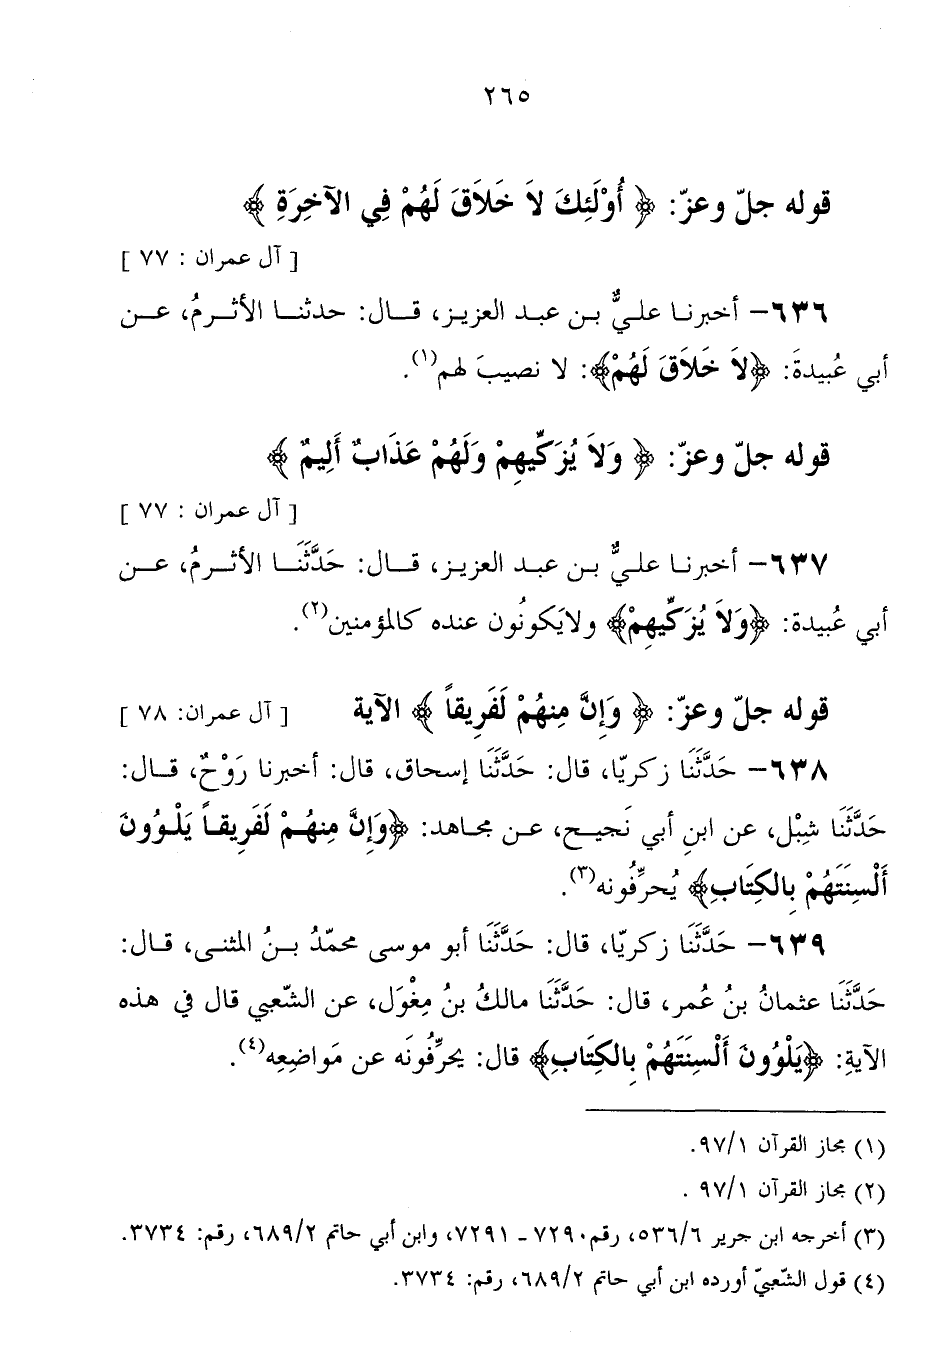 ٢٦٥
قوله جلّ وعزّ: ﴿ أُوْلَئِكَ لاَ خَلاَقَ لَهُمْ فِي الآخِرَةِ ﴾
[ آل عمران : ٧٧ ]
٦٣٦- أخبرنا عليٌّ بن عبد العزيز، قال: حدثنا الأثرمُ، عن
أبي عُبيدةَ: ﴿لاَ خَلاَقَ لَهُمْ﴾: لا نصيبَ لهم(١).
قوله جلّ وعزّ: ﴿ وَلاَ يُزَكِّيهِمْ وَلَهُمْ عَذَابٌ أَلِيمٌ ﴾
[ آل عمران : ٧٧ ]
٦٣٧- أخبرنا عليٌّ بن عبد العزيز، قال: حَدَّثَنَا الأثرمُ، عن
أبي عُبيدة: ﴿وَلاَ يُزَكِّيهِمْ﴾ ولايَكونُون عنده كالمؤمنين(٢).
قوله جلّ وعزّ: ﴿ وَإِنَّ مِنهُمْ لَفَرِيقاً ﴾ الآية [ آل عمران: ٧٨ ]
٦٣٨- حَدَّثَنَا زكريّا، قال: حَدَّثَنَا إسحاق، قال: أخبرنا رَوْحٌ، قال:
حَدَّثَنَا شِبْل، عن ابنِ أبي نَجيح، عن مجاهد: ﴿وَإِنَّ مِنهُمْ لَفَرِيقاً يَلْوُونَ
أَلْسِنَتَهُمْ بِالكِتَابِ﴾ يُحرِّفُونه(٣).
٦٣٩- حَدَّثَنَا زكريّا، قال: حَدَّثَنَا أبو موسى محمّدُ بنُ المثنى، قال:
حَدَّثَنَا عثمانُ بنُ عُمر، قال: حَدَّثَنَا مالكُ بنُ مِغْوَل، عن الشّعبي قال في هذه
الآيةِ: ﴿يَلْوُونَ أَلْسِنَتَهُمْ بِالكِتَابِ﴾ قال: يحرِّفُونَه عن مَواضِعِه(٤).
(١) مجاز القرآن ٩٧/١.
(٢) مجاز القرآن ٩٧/١ .
(٣) أخرجه ابن جرير ٥٣٦/٦، رقم٧٢٩٠ـ ٧٢٩١، وابن أبي حاتم ٦٨٩/٢، رقم: ٣٧٣٤.
(٤) قول الشّعبيّ أورده ابن أبي حاتم ٦٨٩/٢، رقم: ٣٧٣٤.